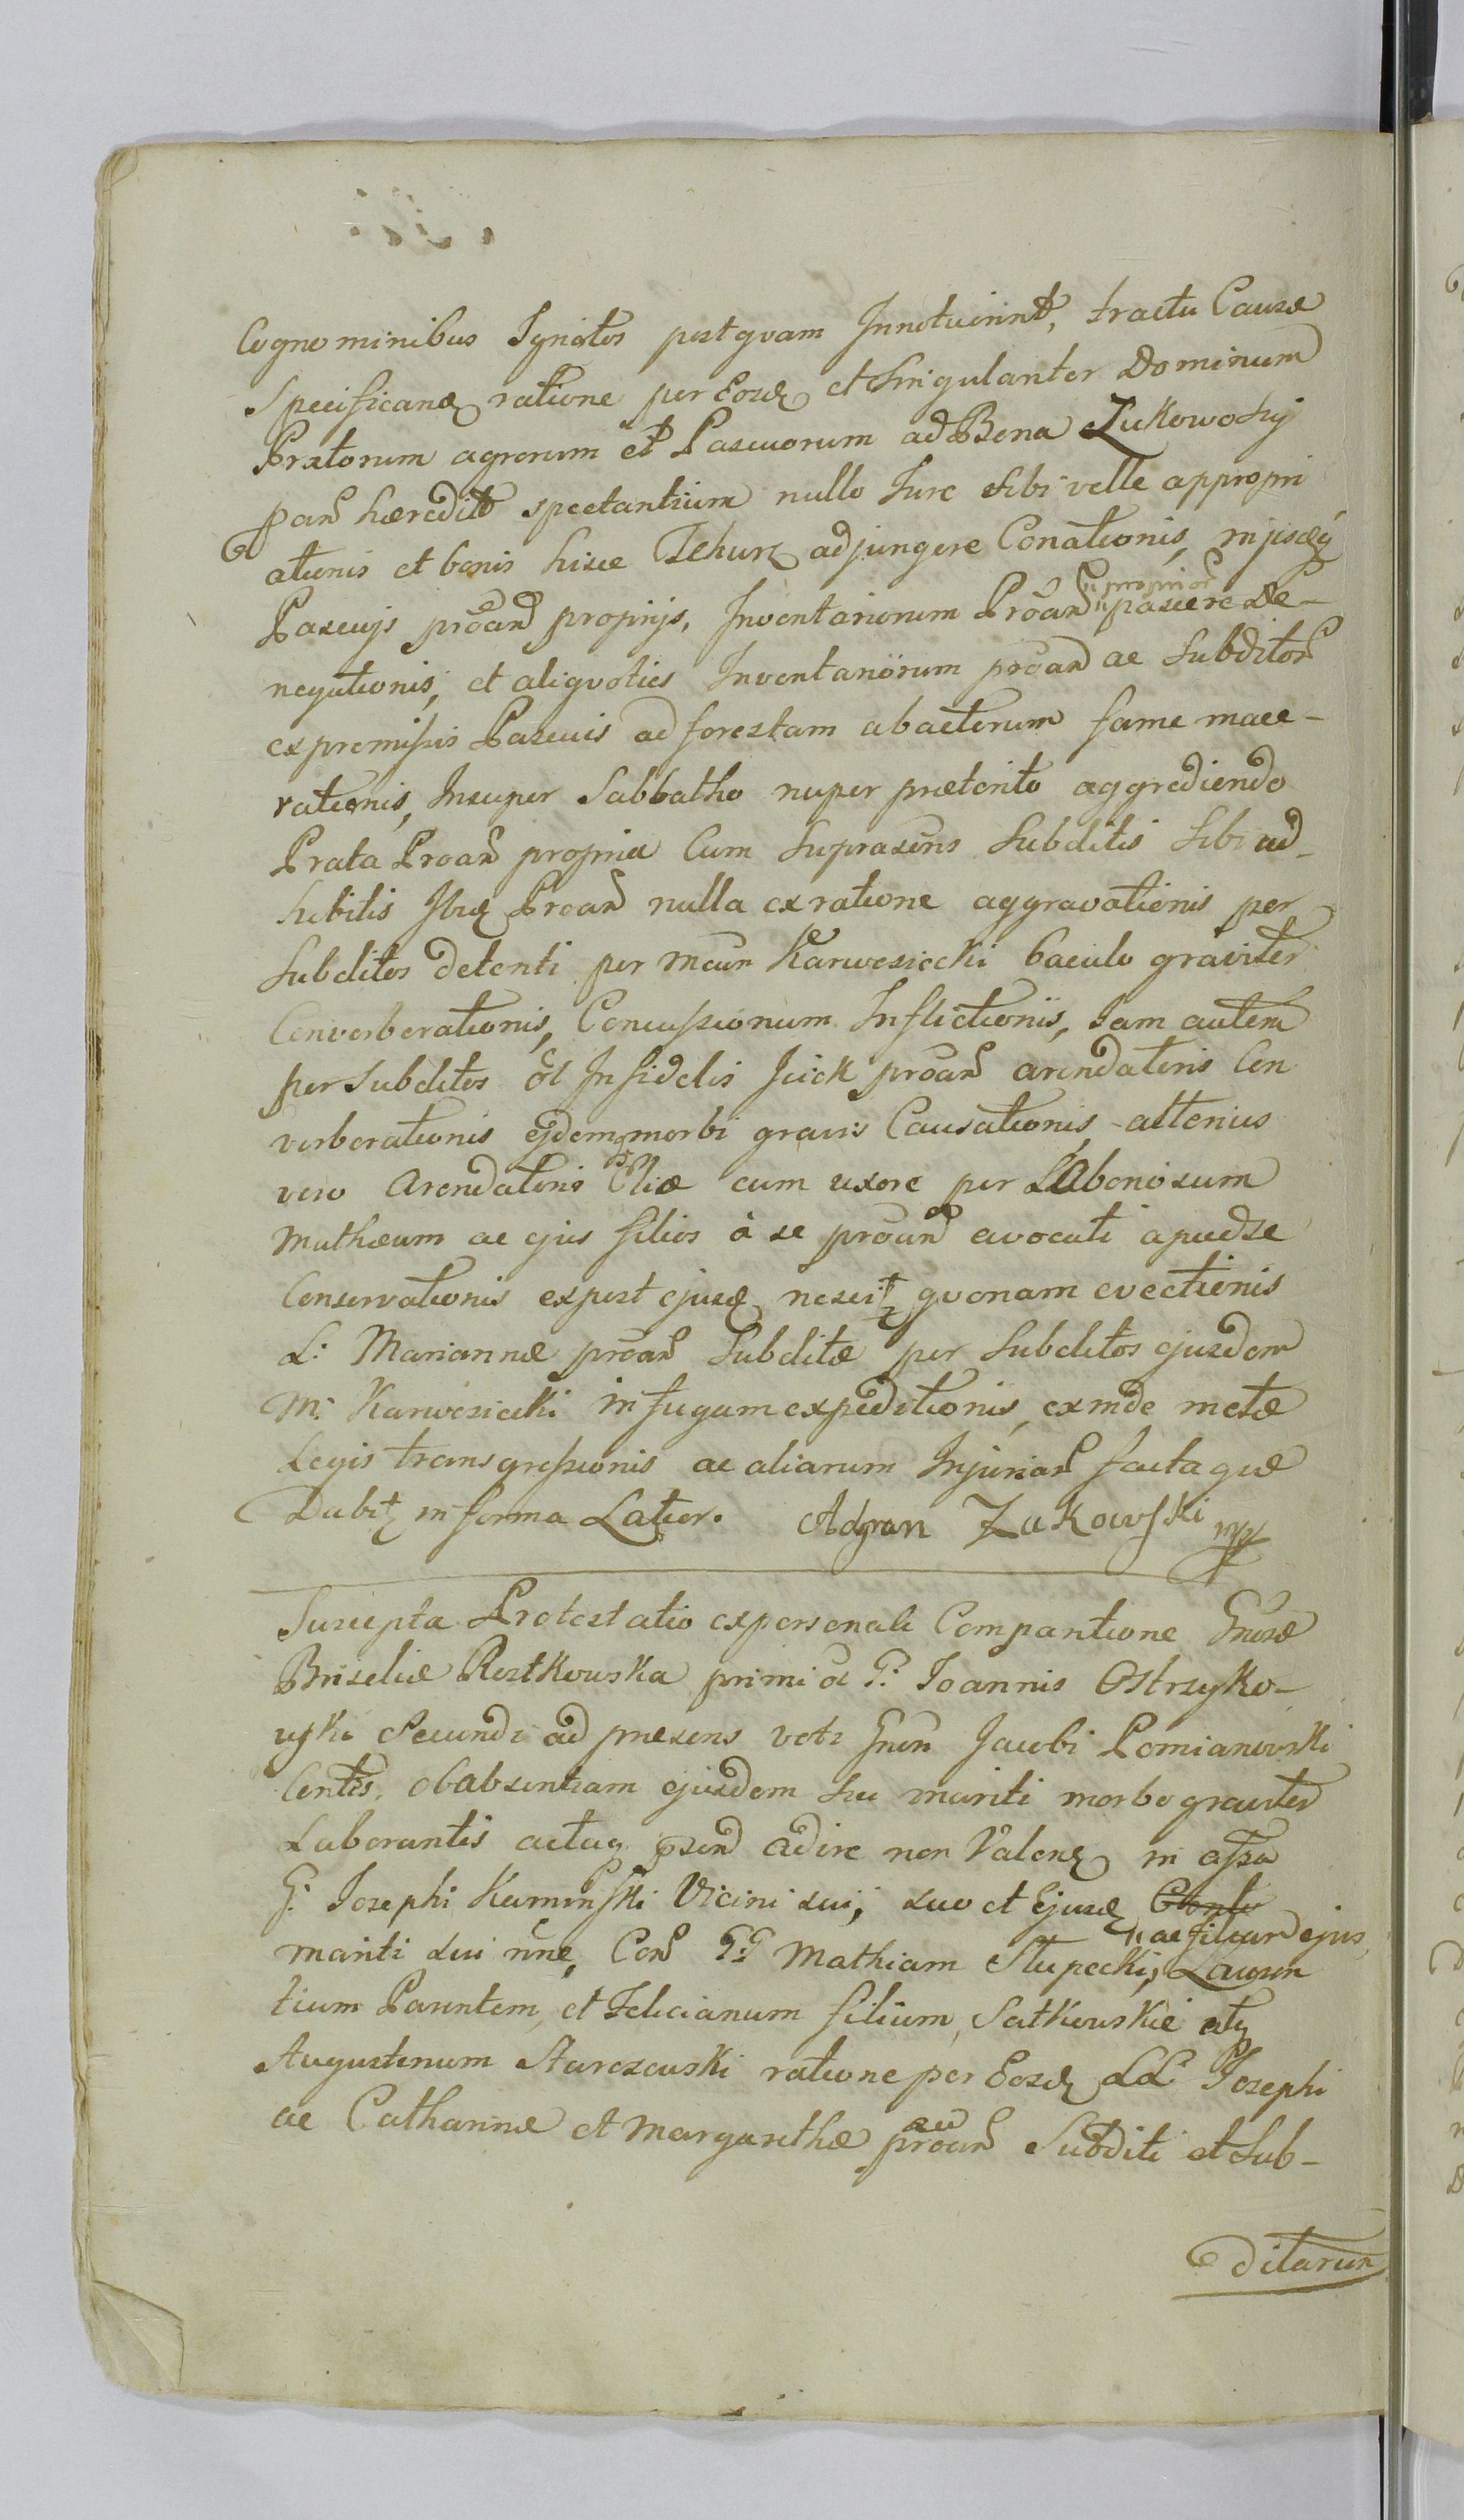 Cognominibus Ignotos postqvam Innotuerint, tractu Causæ
Specificand ratione per Eosd et Singulariter Dominum
Pratorum agrorum et Pascuorum ad Bona Zukowo
pan hæredit spectantium nullo Iure sibi velle appropri
ationis et bonis hisce adjungere Conationis, injisdq
Pascujs proan proprijs, Inventariorum Proan "proprior" pascere De-
negationis, et aliqvoties Inventariorum proan ac Subditor
ex premissis Pascuis ad forestam abactorum fame mace-
rationis, Insuper Sabbatho nuper præterito aggrediendo
Prata Proan propria Cum Suprascns Subditis Sibi ad-
hibitis Proan nulla ex ratione aggravationis per
Subditos detenti per Karwosiecki baculo graviter
Converberationis, Concussionum Inflictionis, Iam autem
per Subditos et Infidelis Icick proan arendatoris Con
verberationis ejdemq morbi gravis Causationis, alterius
vero Arendatoris Eliæ cum uxore per Laboriosum
Mathæum ac ejus filios à se proan avocati apud se
Conservationis expost ejusd nescit qvonam evectionis
L: Mariannæ proan Subditæ per Subditos ejusdem
M: Karwosiecki in fugam expeditionis, exinde metæ
Legis transgressionis ac aliarum Injuriar factaqve
Dubit in forma Latior. Adam Zukowski mp
Suscepta Protestatio ex personali Comparitione Gnosæ
Briselie Rostkowska primi et G: Ioannis Ostrzyko-
wski Secundi ad præsens voti Gnen Jacobi Pomianowski
Contis. ob absentiam ejusdem sui mariti morbo graviter
Laborantis actaq adire non Valens in assa
G: Josephi Kaminski Vicini sui, suo et Ejusd
mariti sui nne, Con GG Mathiam Stupecki, "ac filiar ejus Lauren
tium Parentem, et Felicianum filium, Satkowskie atq
Augustinum Starczewski ratione per Eosd LL Josephi
ac Catharinæ et Margarethæ proan Subditi et Sub-
ditarum